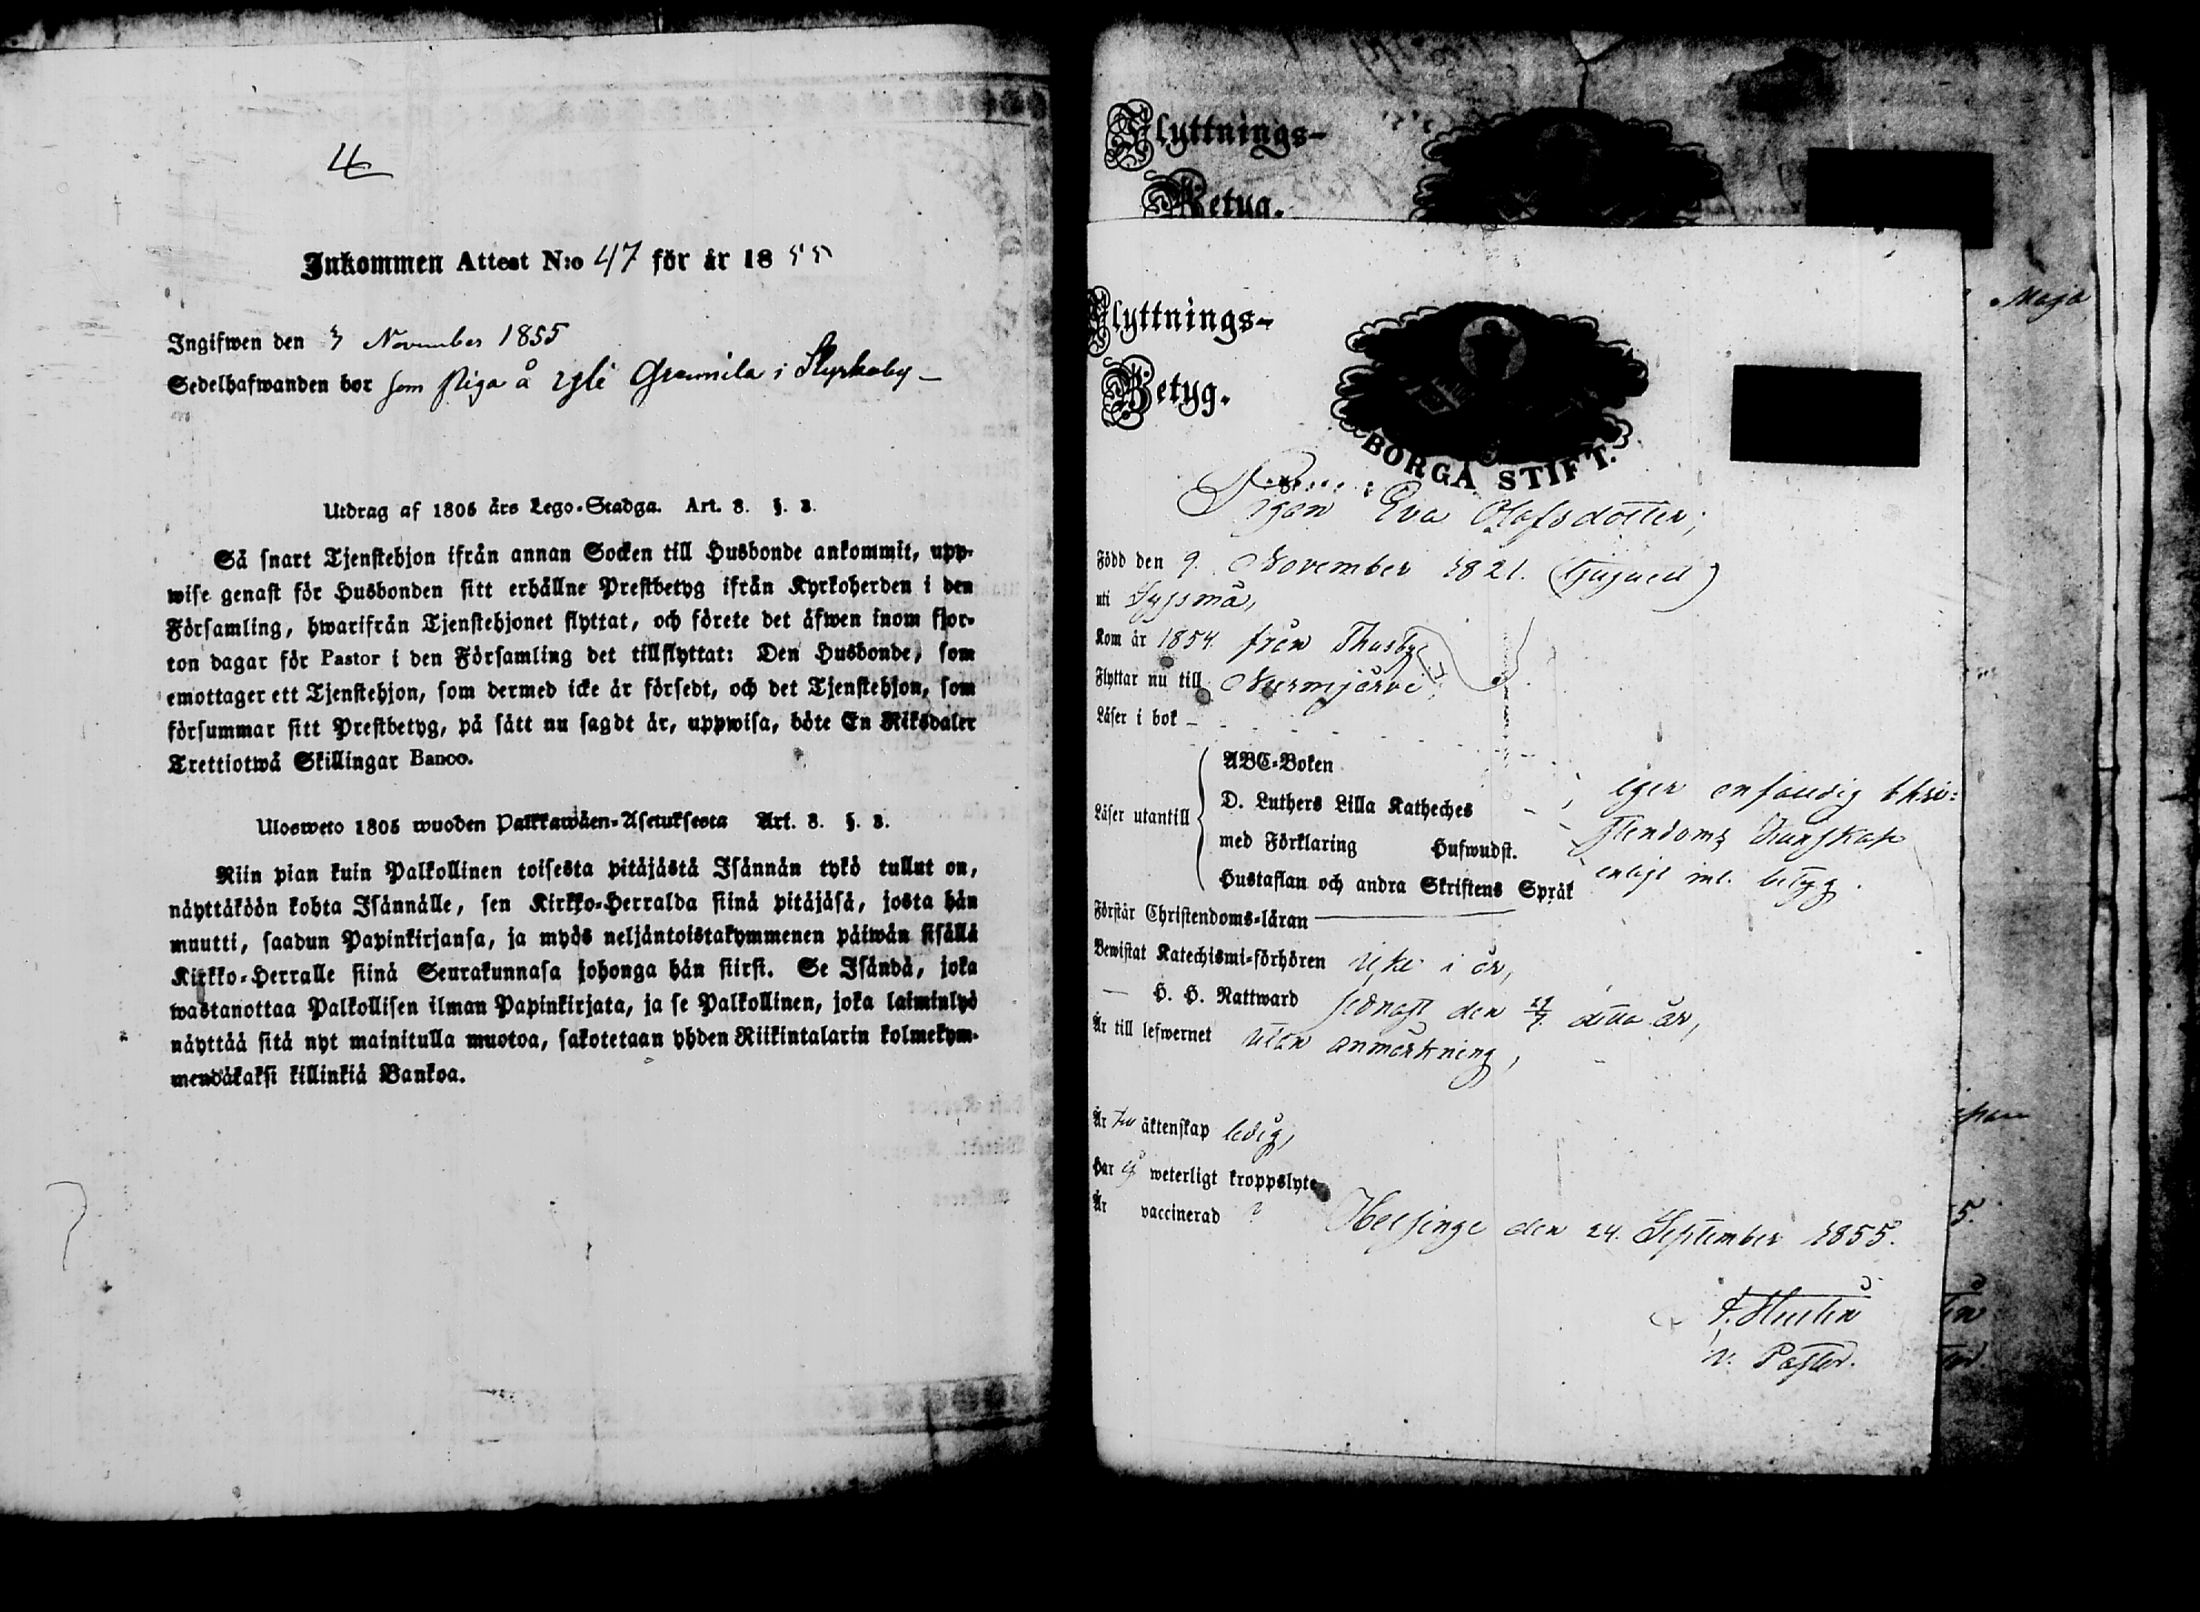 4
Inkommen Attest N:o 47 för år 1855
Ingifwen den 3 November 1855
Sedelhafwanden bor som piga å Ygli Grannila i Skyrkaby –
Utdrag af 1805 års Lego-Stadga. Art. 8. §. 2.
Så snart Tjenstehjon ifrån annan Socken till Husbonde ankommit, upp-
wise genast för Husbonden sitt erhållne Prestbetyg ifrån Kyrkoherden i den
Församling, hwarifrån Tjenstehjonet flyttat, och förete det äfwen inom fjor-
ton dagar för Pastor i den Församling det tillflyttat: Den Husbonde, som
emottager ett Tjenstehjon, som dermed icke är försedt, och det Tjenstehjon, som
försummar sitt Prestbetyg, på sätt nu sagdt är, uppwisa, böte En Riksdaler
Trettiotwå Skillingar Banco.
Ulosweto 1805 wuoden Palkkawäen-Asetuksesta Art. 8. §. 2.
Niin pian kuin Palkollinen toisesta pitäjästä Isännän tykö tullut on,
näyttäköön kohta Isännälle, sen Kirkko-Herralda siinä pitäjäsä, josta hän
muutti, saadun Papinkirjansa, ja myös neljäntoistakymmenen päiwän sisällä
Kirkko-Herralle siinä Seurakunnasa johonga hän siirsi. Se Isändä, joka
wastanottaa Palkollisen ilman Papinkirjata, ja se Palkollinen, joka laiminlyö
näyttää sitä nyt mainitulla muotoa, sakotetaan yhden Riikintalarin kolmekym-
mendäkaksi killinkiä Bankoa.
Flyttnings-
Betyg.
Maja
Flyttnings-
Betyg.
BORGÅ STIFT.
Pigan Eva Olofsdotter,
Född den 9. November 1821.
uti Sysmä,
Kom år 1854. från Thusby
Flyttar nu till Nurmijärvi,
Läser i bok –
Läser utantill
ABC-Boken
D. Luthers Lilla Katheches
med Förklaring Hufwudst.
Hustaflan och andra Skriftens Språk
eger enfaldig Chri-
stendoms Kunskap
enligt inl. betyg.
Förstår Christendoms-läran
Bewistat Katechismi-förhören icke i år,
— H. H. Nattward sednast den detta år,
Är till lefwernet utan anmärkning,
Är till äktenskap ledig,
Har ej weterligt kroppslyte
Är vaccinerad ?
Helsinge den 24. September 1855.
v. Pastor.